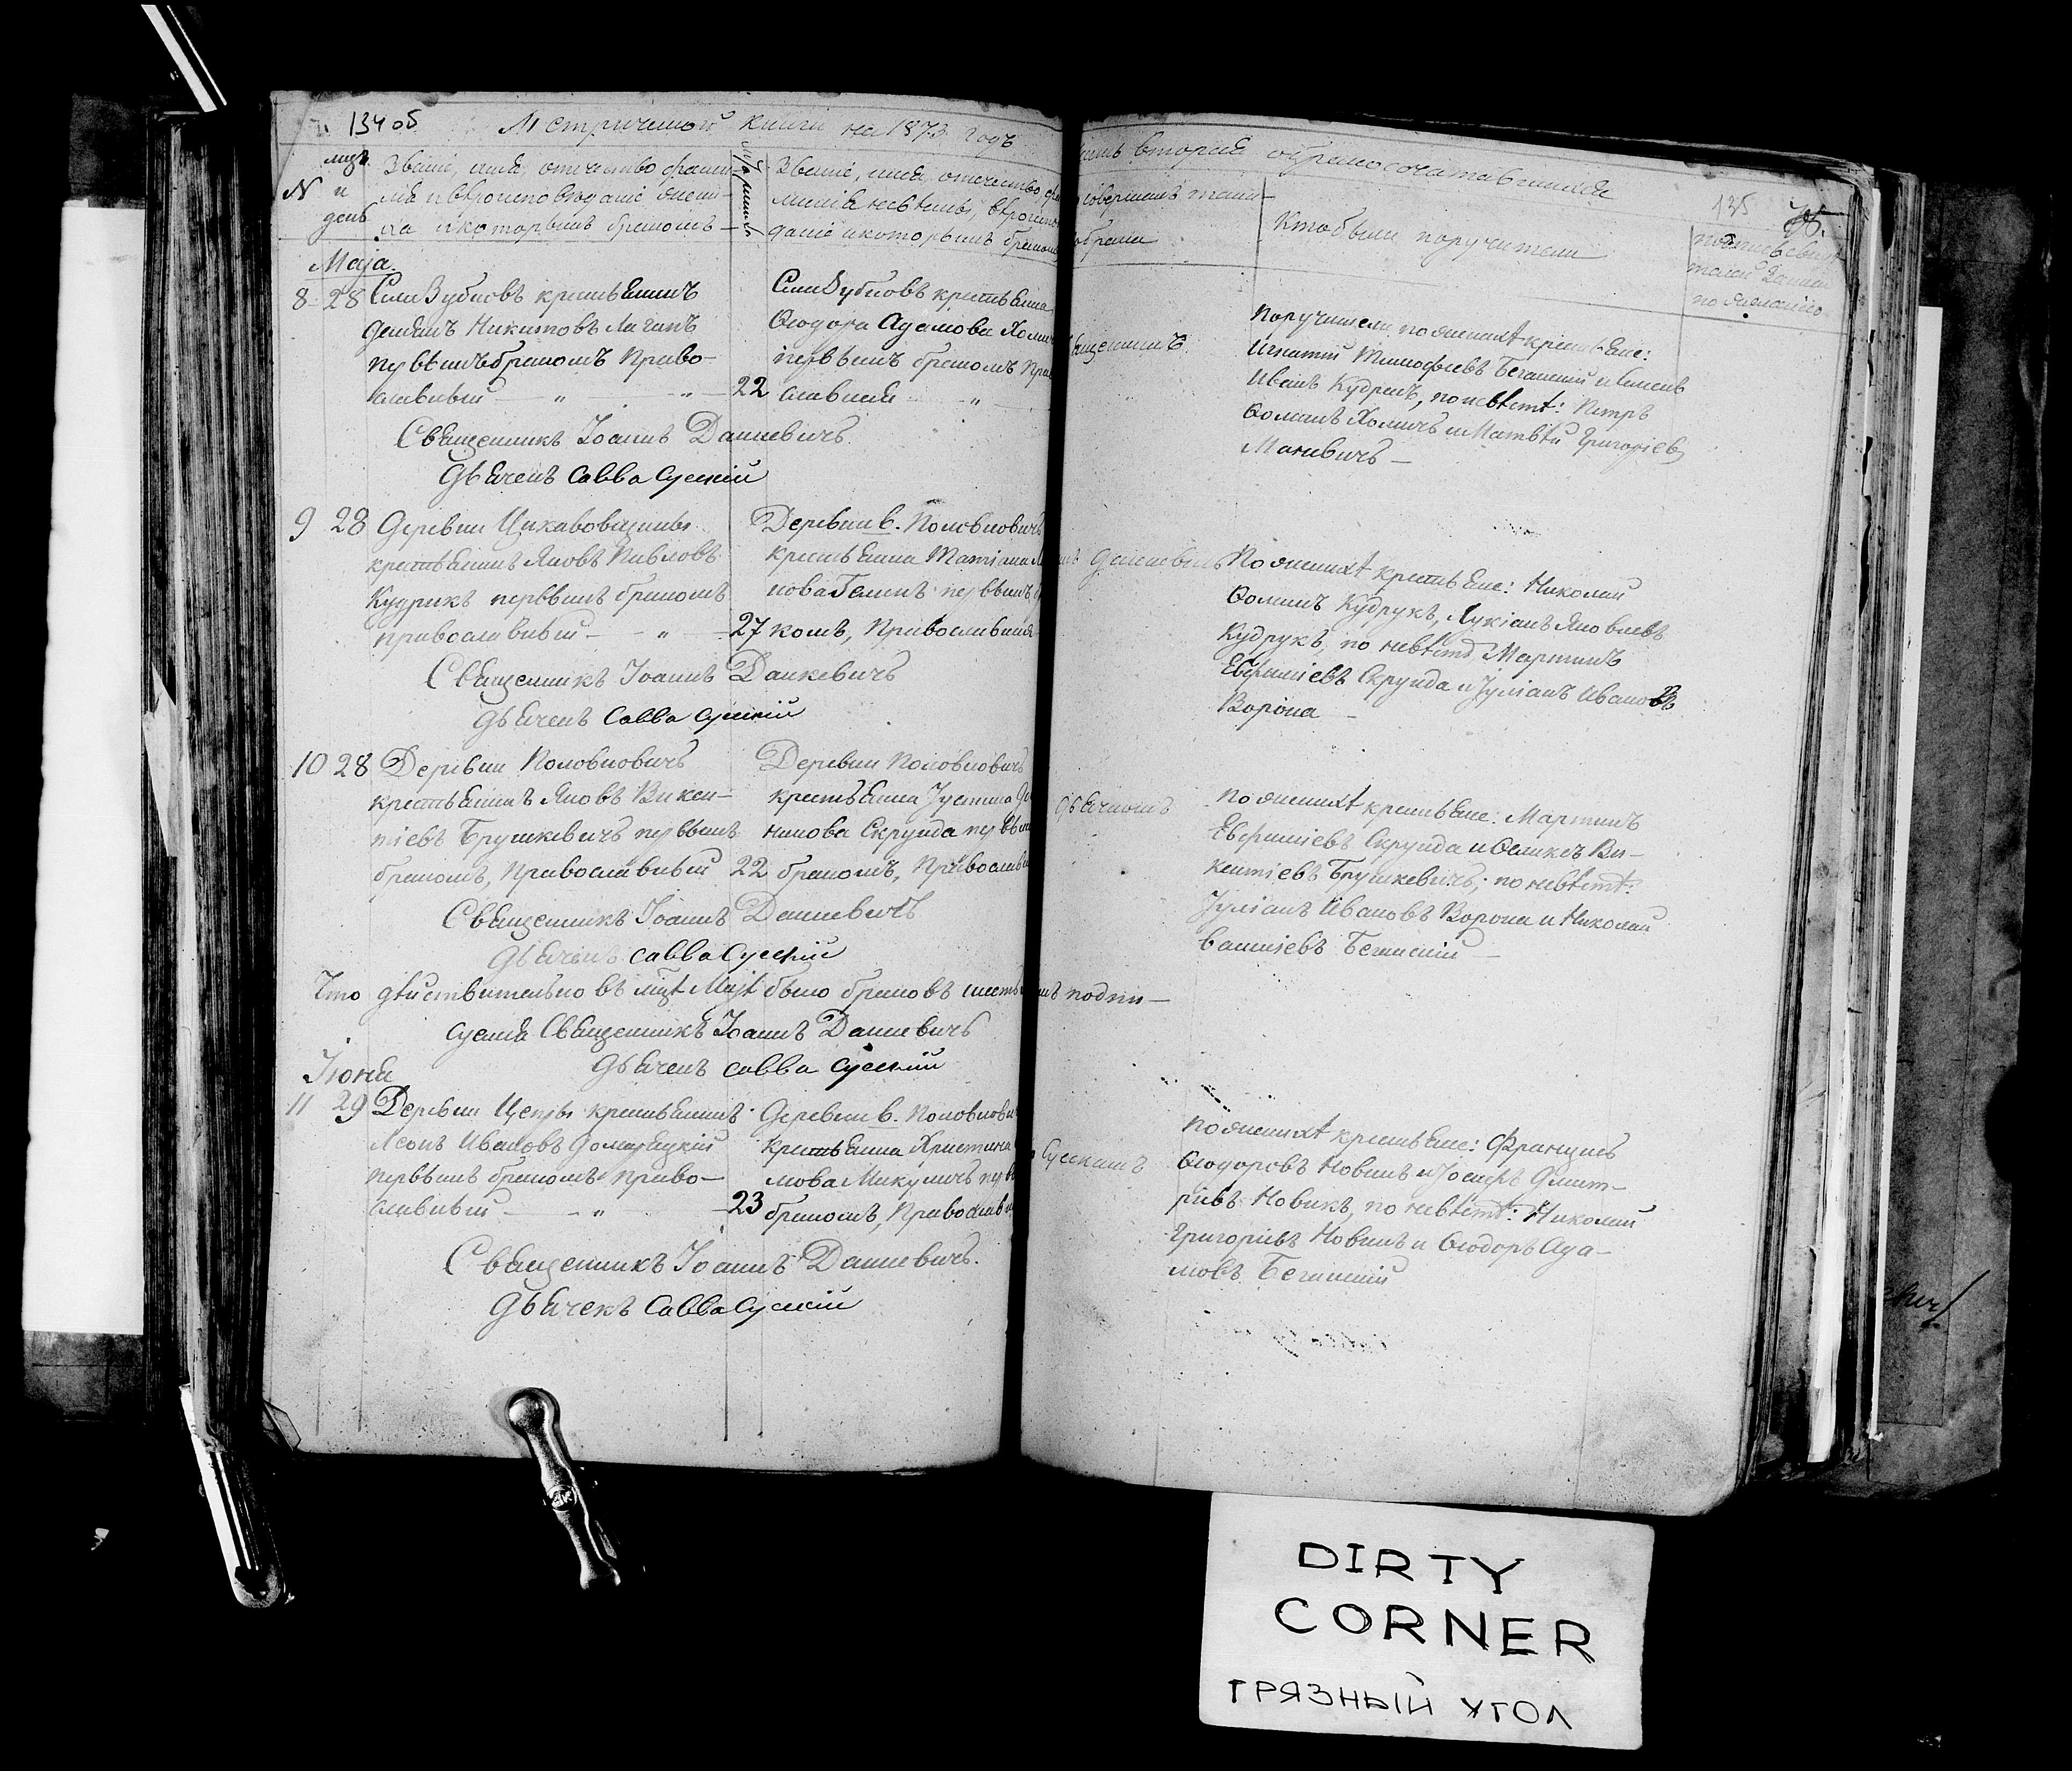 134 об
Метричной книги на 1873 годъ
часть вторая о бракосочетавшихся
135
N
мцъ и день
Званіе, имя, отчество фами-
лія и вѣроисповѣданіе жени-
ха и которымъ бракомъ
Званіе, имя, отечество, фа
милія невѣсты, вѣроиспо
даніе и которымъ бракомъ
совершилъ таин-
о брака
Кто были поручители
по желанію
Маja.
8 28 Села Зубковъ крестьянинъ
Демьянъ Никитовъ Лагинъ
первымъ бракомъ Право-
славный — „ — „ —
22
Села Зубковъ крестьянка
Ѳеодора Адамова Хомич
первымъ бракомъ Пра
славная — „ —
ященникъ.
Поручители по женихѣ крестьяне:
Игнатій Тимофеевъ Беганскій и
Иванъ Кудрикъ, по невѣстѣ: Петръ
Ѳоминъ Хомичъ и Матвѣй Григоріев
Мацкевичъ —
Священникъ Іоаннъ Данкевичъ.
Дьячекъ Савва Сускій
9 28 Деревни Цикавовщины
крестьянинъ Яковъ Павловъ
Кудрикъ первымъ бракомъ
православный — „ —
27
Деревни в. Половковичъ
крестьянка Татіана
нова первымъ
комъ, Православная
Данкевичъ
По женихѣ крестьяне: Николай
Ѳоминъ Кудрукъ, Лукіанъ Яковлевъ
Кудрукъ, по невѣстѣ Мартинъ
Евфиміевъ Скрунда и Іуліанъ Ивановъ
Ворона —
Священникъ Іоаннъ Данкевичъ
Дьячекъ Савва Сускій
10 28 Деревни Половковичъ
крестьянинъ Яковъ Викен-
тіевъ Брушкевичъ первымъ
бракомъ, Православный
22
Деревни Половковичъ
крестьянка Іустина
никова Скрунда первым
бракомъ, Православн
дьячкомъ
По женихѣ крестьяне: Мартинъ
Евфиміевъ Скрунда и Феликсъ Ви-
кентіевъ Брушкевичъ; по невѣстѣ:
Іуліанъ Ивановъ Ворона и Николай
Василіевъ Беганскій —
Священникъ Іоаннъ Данкевичъ
Дьячекъ Савва Сускій
Что дѣйствительно въ мцѣ Маѣ было браковъ шесть подпи-
суемся Священникъ Іоаннъ Данкевичъ
Дьячекъ Савва Сускій
Іюня
11 29 Деревни Цепры крестьянинъ
Леонъ Ивановъ Домарацкій
первымъ бракомъ Право-
славный — „ —
23
Деревни в. Половкови
крестьянка Христина
мова Микуличъ перв
бракомъ, Православн
Сускимъ
По женихѣ крестьяне: Францискъ
Ѳеодоровъ Новикъ и Іосифъ Дмит-
ріевъ Новикъ, по невѣстѣ: Николай
Григоріевъ Новикъ и Ѳеодоръ Ада-
мовъ Беганскій
Священникъ Іоаннъ Данкевичъ.
Дьячекъ Савва Сускій
DIRTY
CORNER
ГРЯЗНЫЙ УГОЛ